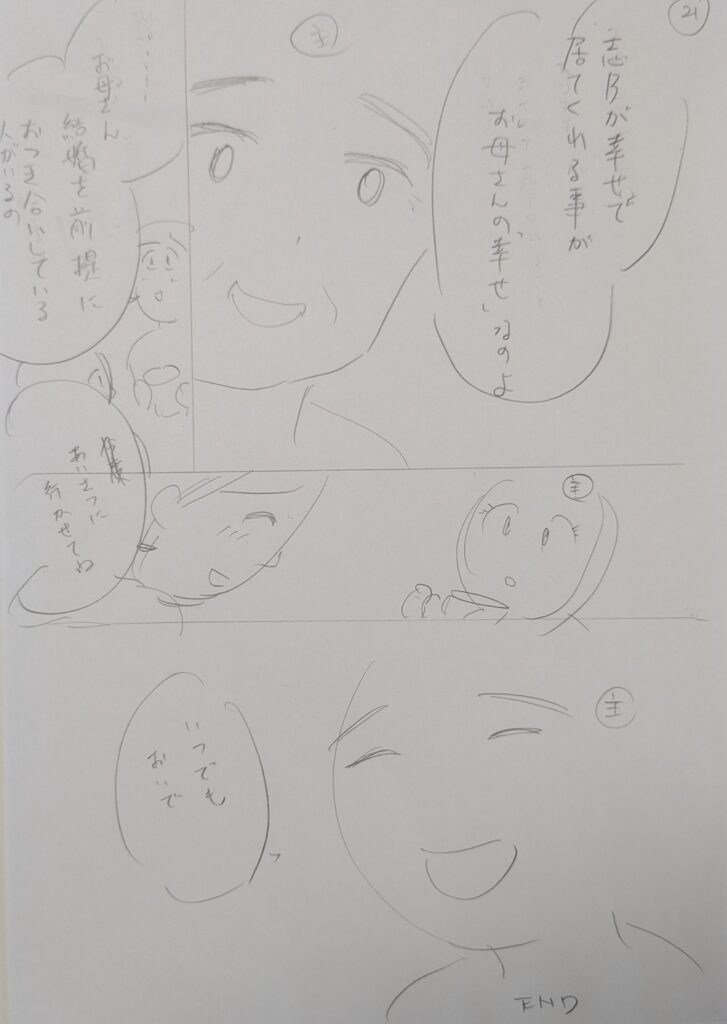 21
志乃が幸せで
居てくれる事が
お母さんの「幸せ」なのよ
主
…………
お母さん
結婚を前提に
おつき合いしている
人がいるの
主
あいさつに
行かせてね
主
いつでも
おいで
END